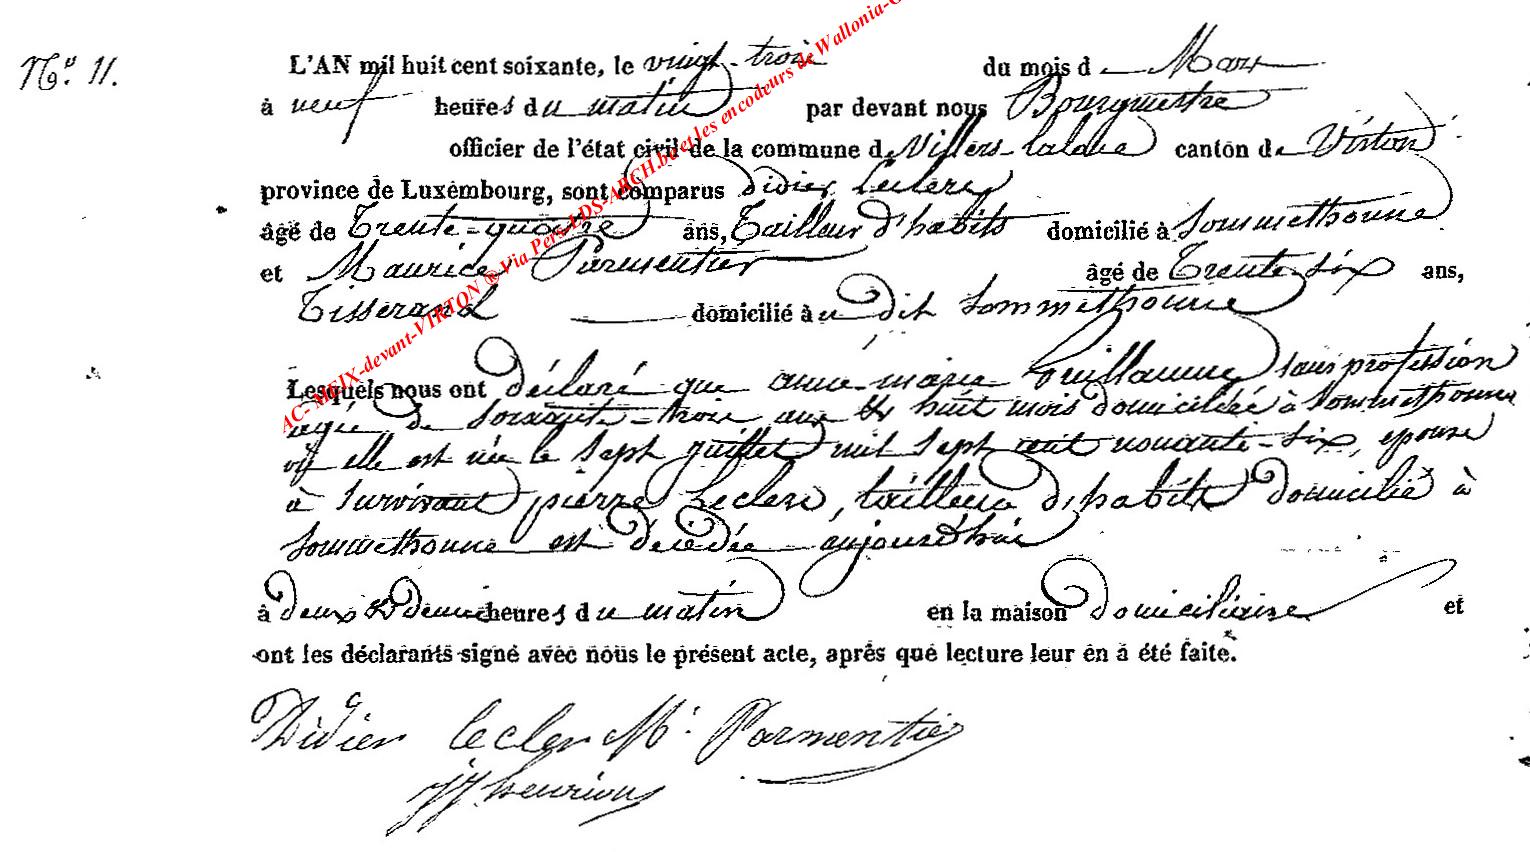 N.° 11.
L'AN mil huit cent soixante, le vingt-trois du mois d Mars
à neuf heures du matin par devant nous Bourgmestre
officier de l'état civil de la commune de Villers-laloue canton de Virton
province de Luxembourg, sont comparus Didier Leclere
âgé de Trente-quatre ans, Tailleur d'habits domicilié à Sommethonne
et Maurice Parmentier âgé de Trente-six ans,
Tisserand domicilié au dit Sommethonne
Lesquels nous ont déclaré que anne-marie Guillaume sans profession
agée de soixante-trois ans & huit mois domiciliée à Sommethonne
où elle est née le sept juillet mil sept cent nonante-six, epouse
à survivant pierre Leclere, tailleur d'habits domicilié à
Sommethonne est décédée aujourd'hui
à deux & demie heures du matin en la maison domiciliaire et
ont les déclarants signé avec nous le présent acte, après que lecture leur en a été faite.
Didier lecler M. Parmentier
JJ henrion
AC- MEIX-devant-VIRTON ® Via Pers-LDS-ARCH.be et les encodeurs de Wallonia-